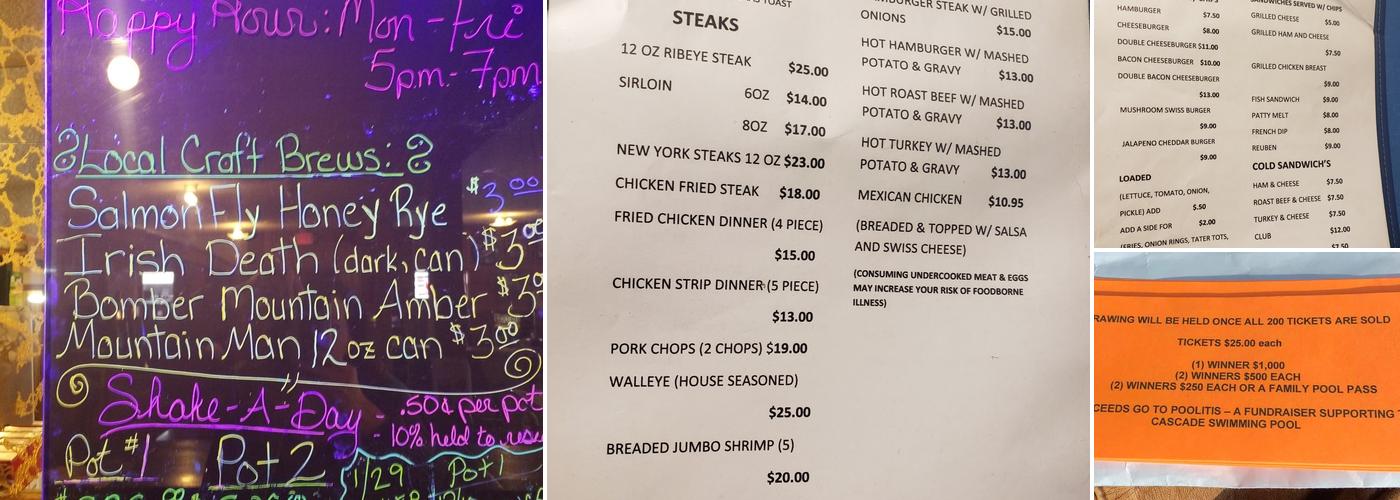 Happy Hour: Mon - Fri
5pm - 7pm
Local Craft Brews:
Salmon Fly Honey Rye $3.00
Irish Death (dark, can) $3.00
Bomber Mountain Amber $3.0
Mountain Man 12 oz can $3.00
Shake-A-Day - .50¢ per pot
- 10% held to
Pot #1 Pot 2 1/29 Pot 1
TOAST
STEAKS
12 OZ RIBEYE STEAK $25.00
SIRLOIN 6OZ $14.00
8OZ $17.00
NEW YORK STEAKS 12 OZ $23.00
CHICKEN FRIED STEAK $18.00
FRIED CHICKEN DINNER (4 PIECE)
$15.00
CHICKEN STRIP DINNER (5 PIECE)
$13.00
PORK CHOPS (2 CHOPS) $19.00
WALLEYE (HOUSE SEASONED)
$25.00
BREADED JUMBO SHRIMP (5)
$20.00
STEAK W/ GRILLED
ONIONS
$15.00
HOT HAMBURGER W/ MASHED
POTATO & GRAVY $13.00
HOT ROAST BEEF W/ MASHED
POTATO & GRAVY $13.00
HOT TURKEY W/ MASHED
POTATO & GRAVY $13.00
MEXICAN CHICKEN $10.95
(BREADED & TOPPED W/ SALSA
AND SWISS CHEESE)
(CONSUMING UNDERCOOKED MEAT & EGGS
MAY INCREASE YOUR RISK OF FOODBORNE
ILLNESS)
HAMBURGER $7.50
CHEESEBURGER $8.00
DOUBLE CHEESEBURGER $11.00
BACON CHEESEBURGER $10.00
DOUBLE BACON CHEESEBURGER
$13.00
MUSHROOM SWISS BURGER
$9.00
JALAPENO CHEDDAR BURGER
$9.00
LOADED
(LETTUCE, TOMATO, ONION,
PICKLE) ADD $.50
ADD A SIDE FOR $2.00
(FRIES, ONION RINGS, TATER TOTS,
SANDWICHES SERVED W/ CHIPS
GRILLED CHEESE $5.00
GRILLED HAM AND CHEESE
$7.50
GRILLED CHICKEN BREAST
$9.00
FISH SANDWICH $9.00
PATTY MELT $8.00
FRENCH DIP $8.00
REUBEN $9.00
COLD SANDWICH'S
HAM & CHEESE $7.50
ROAST BEEF & CHEESE $7.50
TURKEY & CHEESE $7.50
CLUB $12.00
$7.50
RAWING WILL BE HELD ONCE ALL 200 TICKETS ARE SOLD
TICKETS $25.00 each
(1) WINNER $1,000
(2) WINNERS $500 EACH
(2) WINNERS $250 EACH OR A FAMILY POOL PASS
CEEDS GO TO POOLITIS – A FUNDRAISER SUPPORTING
CASCADE SWIMMING POOL